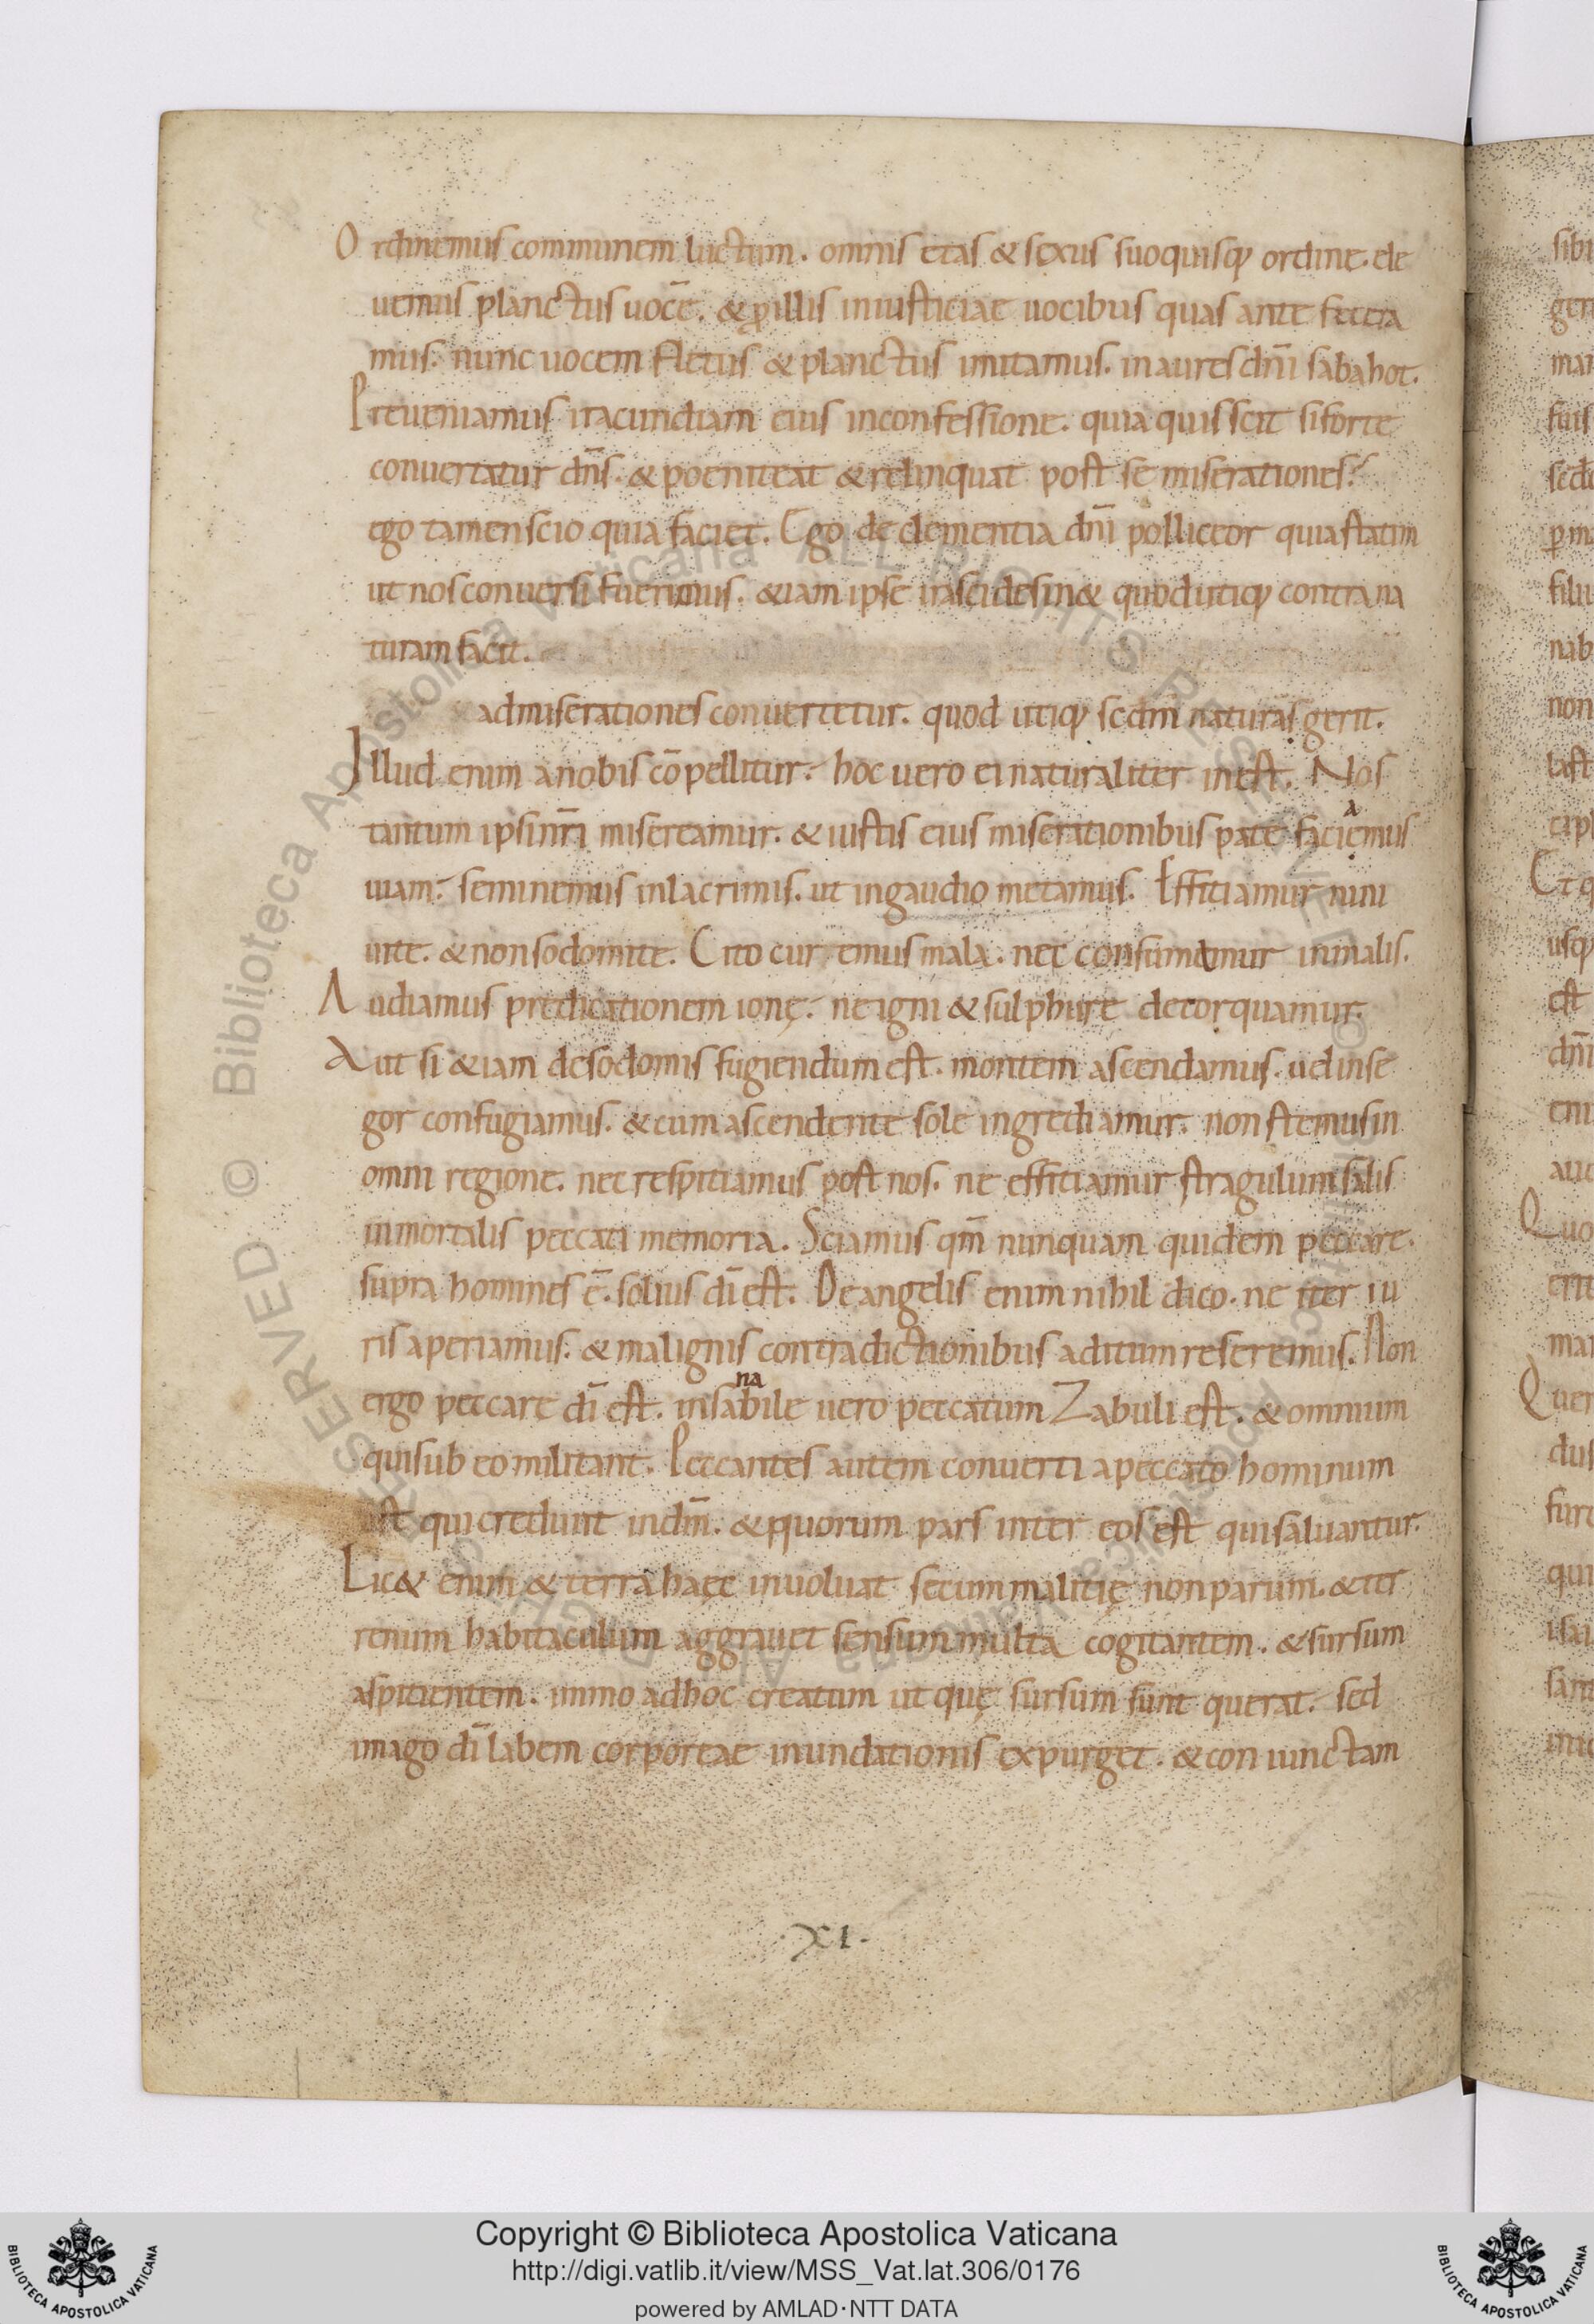 Ordinemus communem luctum. omnis etas & sexus suo quisq; ordine. ele
uemus planctus uocē. & ꝓ illis iniusticiae uocibus quas ante fecera
mus. nunc uocem fletus & planctus imitamus. in aures dn̄i sabahot.
Preueniamus iracundiam eius in confessione. quia quis scit si forte
conuertatur dn̄s. & poeniteat & relinquat post se miserationes?
ego tamen scio quia faciet. Ego de clementia dn̄i polliceor quia statim
ut nos conuersi fuerimus. &iam ipse irasci desin& quod utiq; contra na
turam facit.
ad miserationes conuertetur. quod utiq; scdm̄ naturas gerit.
Illud enim a nobis cōpellitur. hoc uero ei naturaliter inest. Nos
tantum ipsi nr̄i misereamur. & iustis eius miserationibus pate faciẹamus
uiam. seminemus in lacrimis. ut in gaudio metamus. Effitiamur nini
uite. & non sodomite. Cito cur emus mala. nec consumemur in malis.
Audiamus predicationem ionę. ne igni & sulphure detorquamur.
Aut si &iam de sodomis fugiendum est. montem ascendamus. uel in se
gor confugiamus. & cum ascendente sole ingrediamur. non stemus in
omni regione. nec respitiamus post nos. ne effitiamur stragulum salis
inmortalis peccati memoria. Sciamus qm̄ nunquam quidem peccare.
supra homines ē. solius dī est. De angelis enim nihil dico. ne iter iu
ris aperiamus. & malignis contradictionibus aditum reseremus. Non
ergo peccare dī est. insanabile uero peccatum Zabuli est. & omnium
qui sub eo militant. Peccantes autem conuerti a peccato hominum
est qui credunt in dm̄. & quorum pars inter eos est qui saluantur.
Lic& enim & terra haec inuoluat secum malitię non parum. & ter
renum habitaculum aggrauet sensum multa cogitantem. & sursum
aspitientem. immo ad hoc creatum ut quę sursum sunt querat. sed
imago dī labem corporeae inundationis expurget. & coniunctam
·XI·
sibi
ger
mar
fuis
filii
nab
non
last
usq
est
dn̄i
eni
auc
Quo
erit
mar
Quer
dus
furt
qui
isai
sam
Biblioteca Apostolica Vaticana ALL RIGHTS RESERVED ©
Copyright © Biblioteca Apostolica Vaticana
http://digi.vatlib.it/view/MSS_Vat.lat.306/0176
powered by AMLAD·NTT DATA
BIBLIOTECA APOSTOLICA VATICANA
BIBLIOTECA APOSTOLICA VATICANA